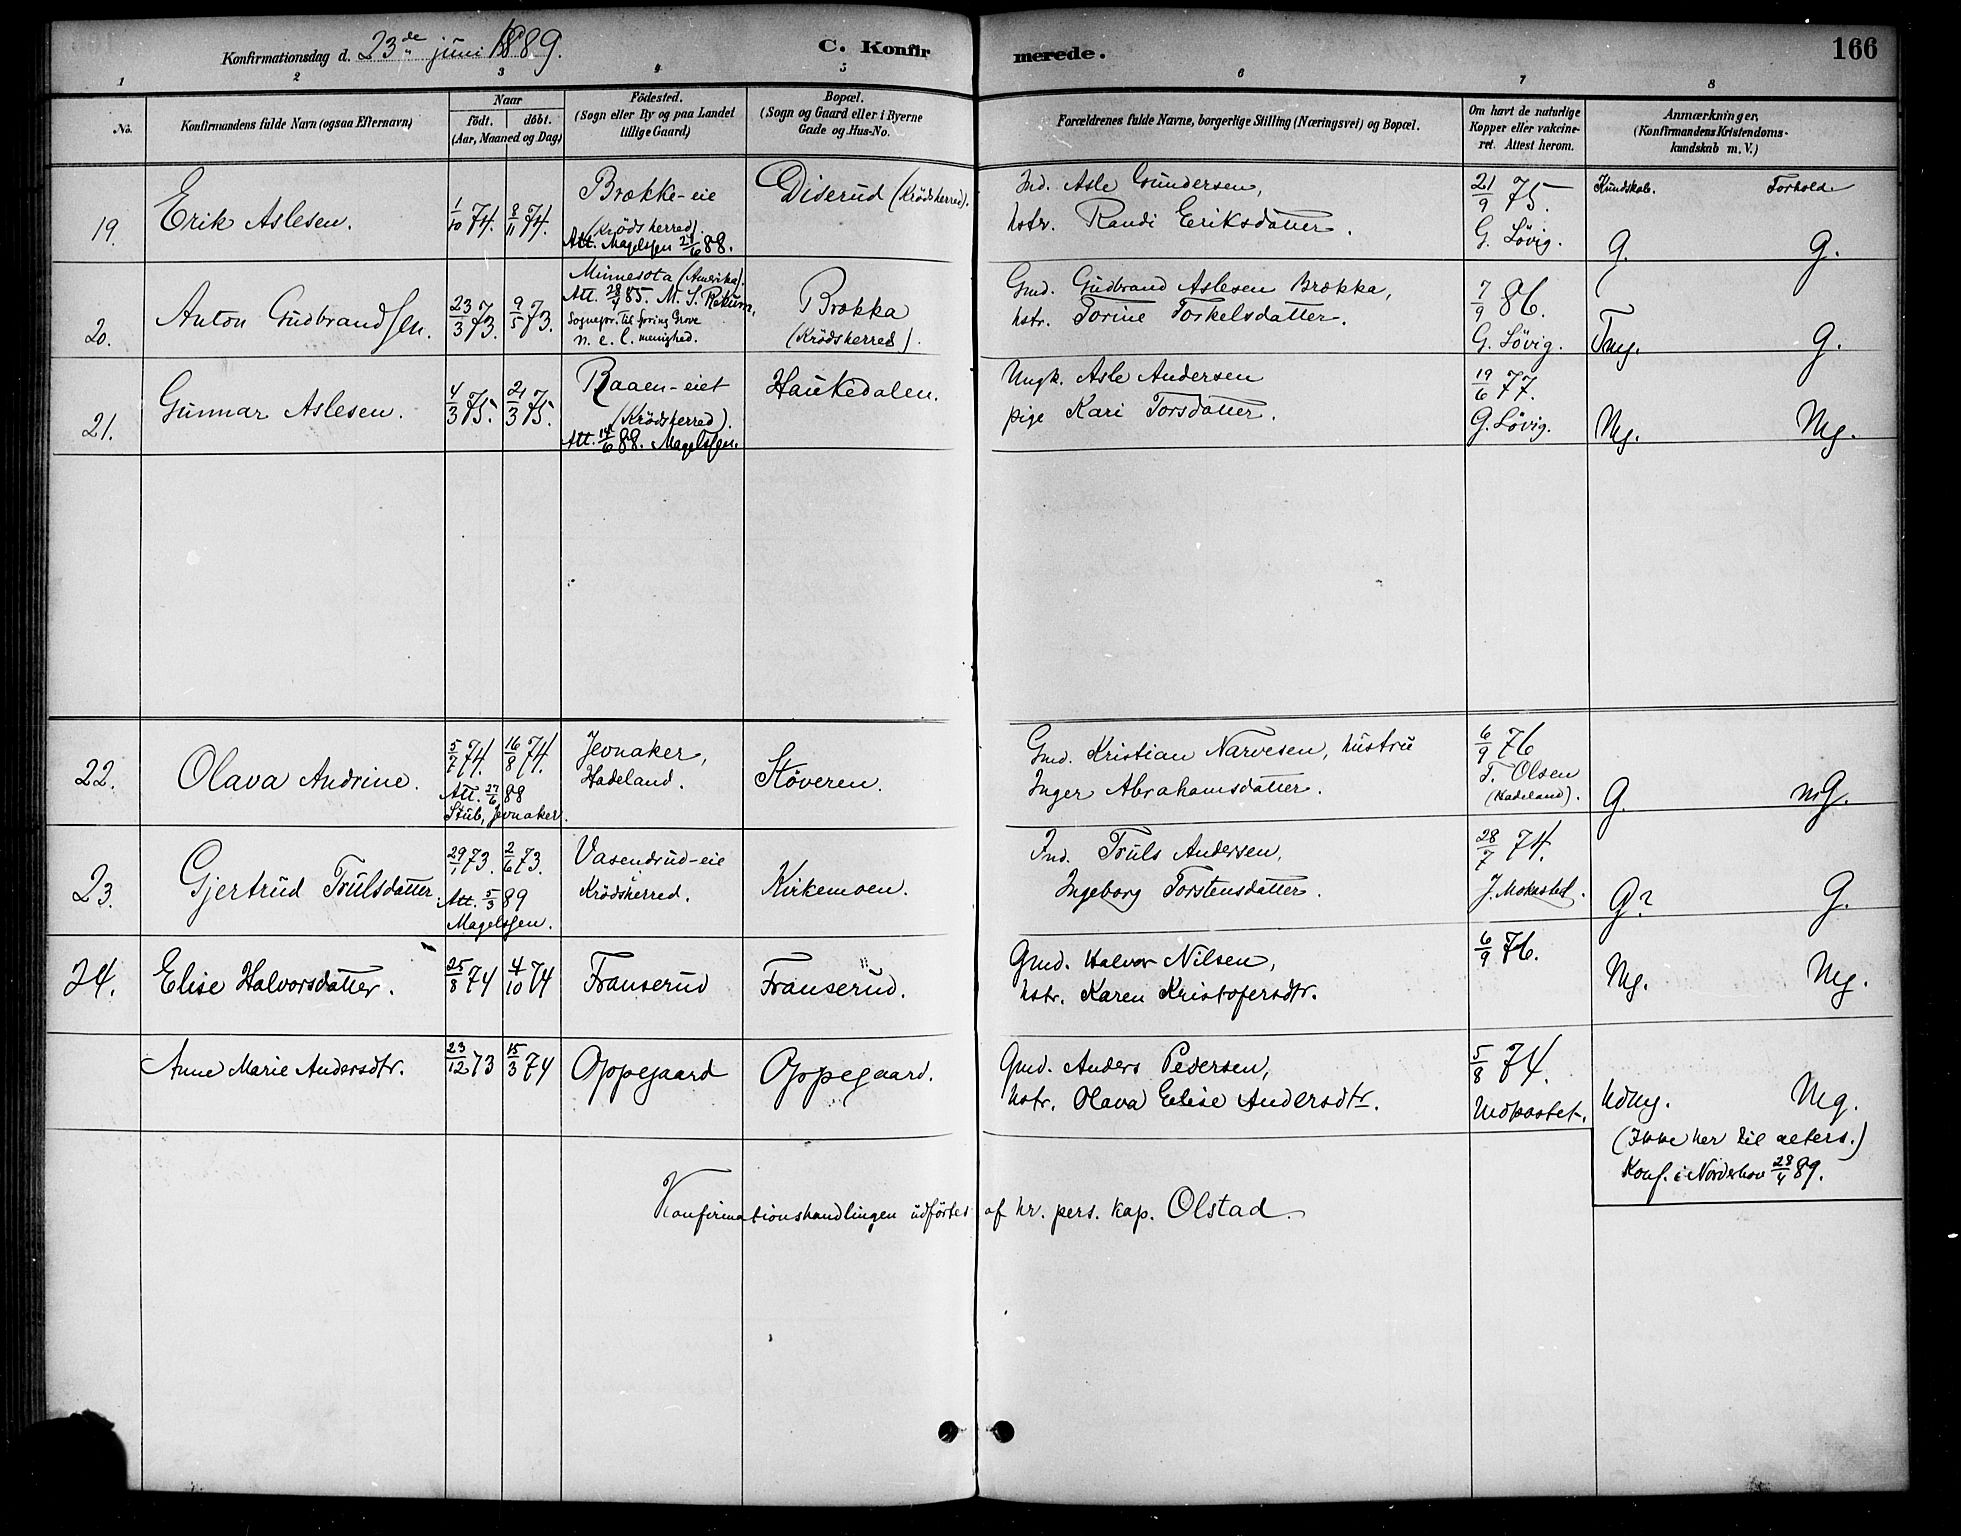 Konfirmationsdag d. 23de juni 1889. C. Konfirmerede. 166
1 2 3 4 5 6 7 8
No.
Konfirmandens fulde Navn (ogsaa Efternavn)
Naar
födt. döbt.
(Aar, Maaned og Dag)
Födested.
(Sogn eller By og paa Landet
tillige Gaard)
Bopæl.
(Sogn og Gaard eller i Byerne
Gade og Hus-No.
Forældrenes fulde Navne, borgerlige Stilling (Næringsvei) og Bopæl.
Om havt de naturlige
Kopper eller vakcine-
ret. Attest herom.
Anmærkninger,
(Konfirmandens Kristendoms-
kundskab m. V.)
19. Erik Aslesen. 1/10 74. 8/11 74.
Brække-eie
(Krödsherred).
Att. Magelssen 24/6 88.
Diserud (Krödsherred).
Ind. Asle Gundersen,
hstr. Randi Eriksdatter.
21/9 75.
G. Lövig.
Kundskab. Forhold.
G. G.
20. Anton Gudbrandsen. 23/3 73. 9/5 73.
Minnesota (Amerika).
Att. 28/4 85. M. S. Rekum,
Sognepr. til Spring Grove
n. e. l. menighed.
Brække
(Krödsherred).
Gmd. Gudbrand Aslesen Brække,
hstr. Torine Torkelsdatter.
7/9 86.
G. Lövig.
Tmg. G.
21. Gunnar Aslesen. 4/3 75. 21/3 75.
Raaen-eiet
(Krödsherred).
Att. 14/6 88. Magelssen.
Haukedalen.
Ungk. Asle Andersen
pige Kari Torsdatter.
19/6 77.
G. Lövig.
Mg. Mg.
22. Olava Andrine. 5/7 74. 16/8 74.
Att. 27/6 88
Stub, Jevnaker.
Jevnaker,
Hadeland.
Støveren.
Gmd. Kristian Narvesen, hustru
Inger Abrahamsdatter.
6/9 76
T. Olsen
(Hadeland).
G. mG.
23. Gjertrud Trulsdatter. 29/1 73. 2/6 73.
Att. 5/3 89
Magelssen.
Vasendrud-eie
Krödsherred.
Kirkemoen.
Ind. Truls Andersen,
Ingeborg Torstensdatter.
28/7 74.
J. Mokastad.
G? G.
24. Elise Halvorsdatter. 25/8 74 4/10 74 Franserud Franserud.
Gmd. Halvor Nilsen,
hstr. Karen Kristofersdtr.
6/9 76.
Mg. Mg.
Anne Marie Andersdtr. 23/12 73 15/3 74 Oppegaard Oppegaard.
Gmd. Anders Pedersen,
hstr. Olava Elise Andersdtr.
5/8 74.
Udmg. Mg.
(Ikke her til alters.)
Konf. i Norderhov 28/4 89.
Konfirmationshandlingen udførtes af hr. pers. kap. Olstad.